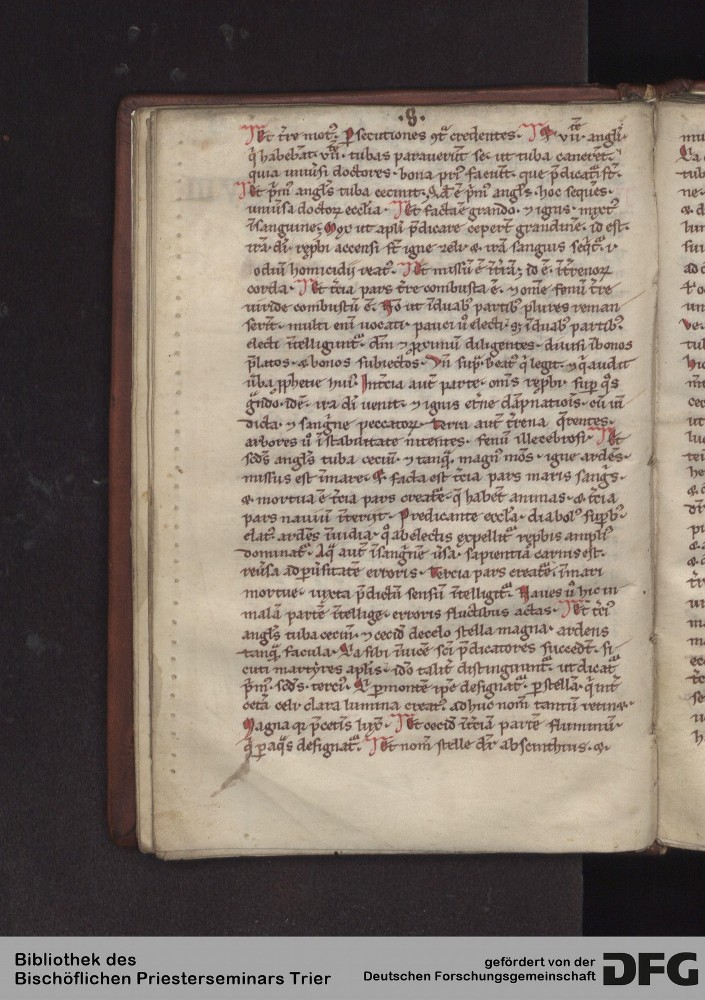 ·8·
Et tre mot᷒. Psecutiones ɔtͣ credentes. Et vii angli.
q̇ habebāt. vii. tubas paraverūt se. ut tuba canerēt.
quia univͥsi doctores. bona pri faciūt. que p̄dicati st̄.
Et pͥm᷒ angl̄s tuba cecinit. id ē pͥm᷒ angl̄s. hoc seqͥēs.
univͥsa doctoꝝ ecclīa. Et factā ē grando. ⁊ ignis. mixt᷒
ī sanguine. Mox ut apli p̄dicare ceper̄t grandinē. id est.
irā di. repbi accensi st̄ igne
odiū homicidii reat᷒. Et missū ē ī t̄rā; id ē. ī t̄renoꝝ
corda. Et t̄cia pars t̄re combusta ē. ⁊ om̄e fenū t̄re
viride combustū ē. ut ī duab᷒ partib᷒ plures reman
serīt. multi enī vocati. pauci u̇ electi. sꝫ ī duab᷒ partib᷒.
electi ītelligunt̄. dm̄ ⁊ pximū diligentes. divisi ī bonos
p̄latos. ⁊ bonos subiectos. Un̄ supͣ. beat᷒ q̇ legit. ⁊ q̇ audit
v̄ba ꝓphetie hui᷒. In t̄cia aut̄ parte. om̄s repbi. sup q̇s
gͣndo. id ē. ira di venit. ⁊ ignis et̄ne dāpnatiōīs.
dicta. ⁊ sangͥne peccatoꝝ. Tercia aut̄ t̄rena q̄rentes.
arbores ī stabilitate īterītes. fenū illecebrosi. Et
scd̄s angl̄s tuba cecinͥ. ⁊ tanqͣ. magn᷒ mōs. igne ardēs.
missus est ī mare. Et facta est t̄cia pars maris sangͥs.
⁊ mortua ē t̄cia pars creatͤ. q̄ habēt animas. ⁊ t̄cia
pars naviū īteriit. Predicante eccl̄a. diabol᷒ supb᷒.
elat᷒ ardēs īvidia. qͥ ab electis expellit̄ repbis ampli᷒
dominat̄. Aq̄ aut̄ ī sangͥnē v̄sa. sapientia carnis est.
rev̄sa ad pv̄sitatē erroris. Tercia pars creatͤ. ī mari
mortue. iuxta p̄dictū sensū ītelligit̄. Naves u̇ hic in
malā partē ītellige. erroris fluctibus actas. Et t̄ci᷒
angl̄s tuba cecinͥ. ⁊ cecid de celo stella magna. ardens
tanqͣ facula. Ita sibi īvicē sci p̄dicatores succedt̄. si
cuti martyres aplis. idō talit̄ distingunt̄. ut dicat̄
pͥm᷒. scd̄s. terci᷒. Et p montē ipse designat̄. p stellā. q̇ īnt̄
cetā celi clara lumina creat᷒. adhuc nom̄ tantū retinet.
Magna qͥ p̄cet̄is luxͥ. Et cecid ī t̄ciā partē fluminū.
q̇ p aqͣs designat̄. Et nom̄ stelle dr̄ absinthius. ⁊
Bibliothek des
Bischöflichen Priesterseminars Trier
gefördert von der
Deutschen Forschungsgemeinschaft
DFG